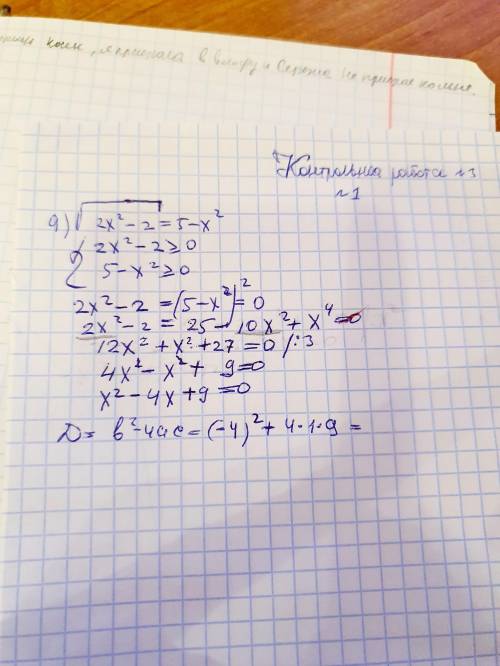 в и Сережа не
Контрольная работа №3
№1
а) √2x²-2 = 5-x²
{ 2x²-2≥0
5-x²≥0
2x²-2 = (5-x²)² = 0
2x²-2 = 25-10x²+x⁴=0
12x²+x²+27=0 /:3
4x²-x²+9=0
x²-4x+9=0
D= b²-4ac=(-4)²+4·1·9=